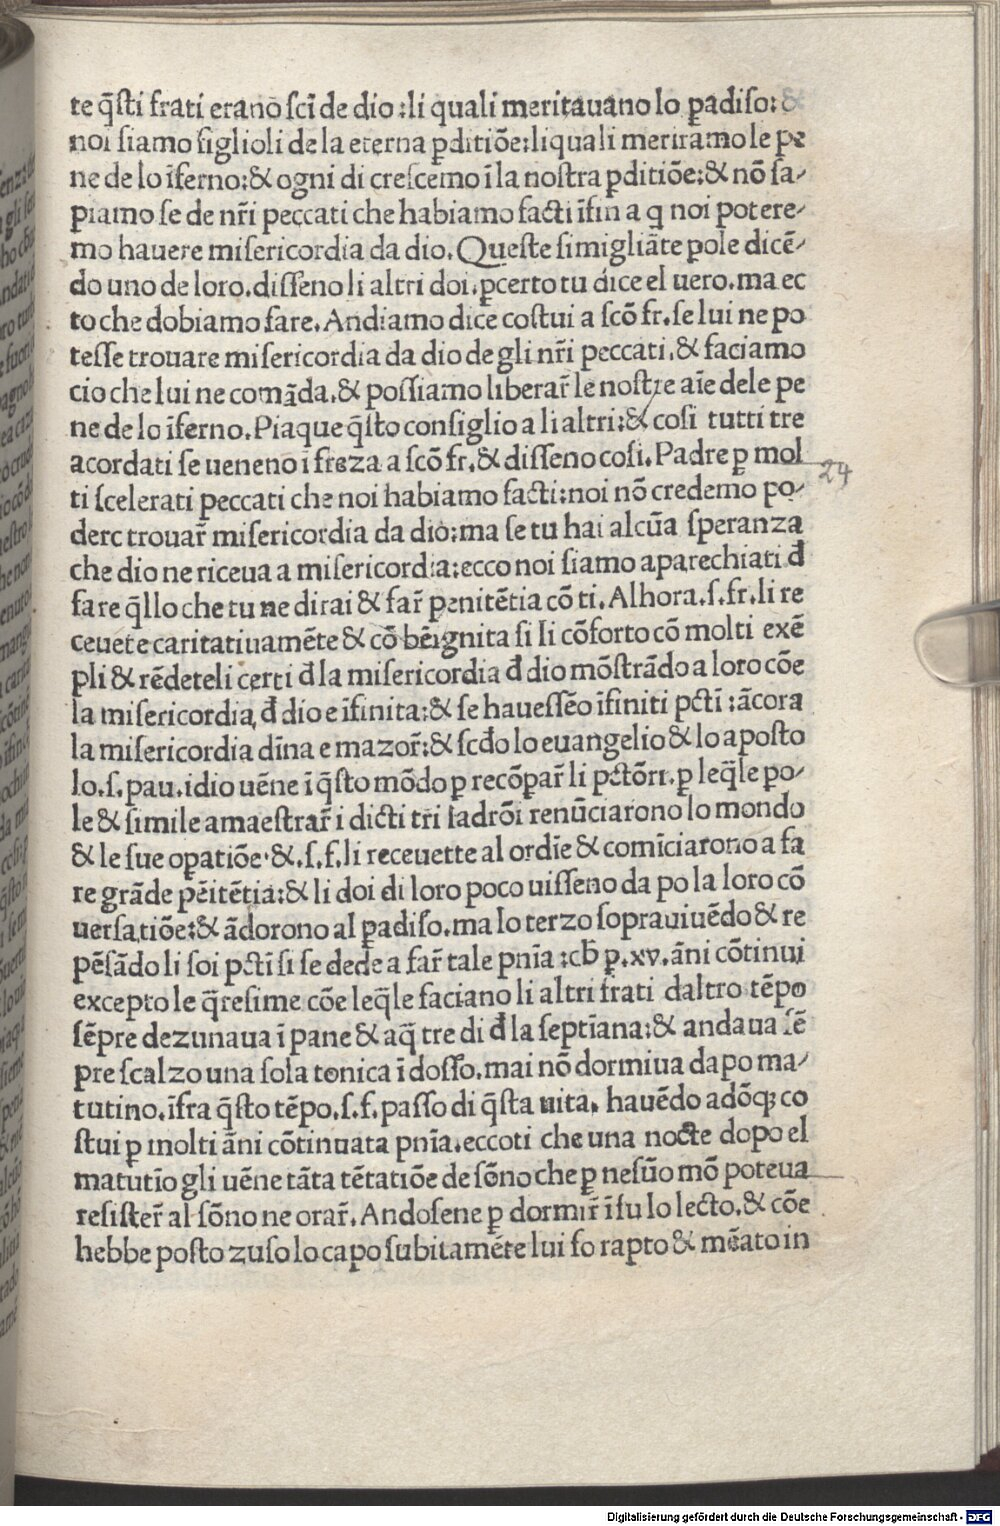 te q̄sti frati erano sc̄i de dio:li quali meritauano lo ꝑadiso:&
noi siamo figlioli de la eterna ꝑditiōe:liquali meriramo le pe
ne de lo īferno:& ogni di crescemo ī la nostra ꝑditiōe:& nō sa⸗
piamo se de nr̄i peccati che habiamo facti īfin a q̄ noi potere⸗
mo hauere misericordia da dio. Queste simigliāte pole dicē⸗
do uno de loro.disseno li altri doi.ꝑcerto tu dice el uero.ma ec
to che dobiamo fare. Andiamo dice costui a scō fr. se lui ne po
tesse trouare misericordia da dio de gli nr̄i peccati.& faciamo
cio che lui ne comāda.& possiamo liberar̄ le nostre aīe dele pe
ne de lo īferno. Piaque q̄sto consiglio a li altri:& cosi tutti tre
acordati se ueneno ī freza a scō fr.& disseno cosi. Padre ꝑ mol
24
ti scelerati peccati che noi habiamo facti:noi nō credemo po⸗
derc trouar̄ misericordia da dio:ma se tu hai alcūa speranza
che dio ne riceua a misericordia:ecco noi siamo aparechiati đ
fare q̄llo che tu ne dirai & far̄ penitētia cō ti. Alhora.s.fr.li re
ceuete caritatiuamēte & cō bēignita si li cōforto cō molti exē
pli & rēdeteli certi đ la misericordia đ dio mōstrādo a loro cōe
la misericordia đ dio e īfinita:& se hauessēo īfiniti pctī:ācora
la misericordia dīna e mazor̄:& scđo lo euangelio & lo aposto
lo.s.pau.idio uēne ī q̄sto mōdo ꝑ recōpar̄ li pctōri.ꝑ leq̄le po⸗
le & simile amaestrar̄ i dicti tri ladrōi renūciarono lo mondo
& le sue opatiōe.&.s.f.li receuette al ordīe & comīciarono a fa
re grāde pēitētia:& li doi di loro poco uisseno da po la loro cō
uersatiōe:& ādorono al ꝑadiso.ma lo terzo soprauiuēdo & re
pēsādo li soi pctī si se dede a far̄ tale pnīa:cħ ꝑ.xv.āni cōtinui
excepto le q̄resime cōe leq̄le faciano li altri frati daltro tēpo
sēpre dezunaua ī pane & aq̄ tre di đ la septīana:& andaua sē
pre scalzo una sola tonica ī dosso.mai nō dormiua dapo ma⸗
tutino.īfra q̄sto tēpo.s.f.passo di q̄sta uita. hauēdo adōqꝫ co
stui ꝑ molti āni cōtinuata pnīa.eccoti che una nocte dopo el
matutīo gli uēne tāta tētatiōe de sōno che ꝑ nesūo mō poteua
resister̄ al sōno ne orar̄. Andosene ꝑ dormir̄ īsu lo lecto.& cōe
hebbe posto zuso lo capo subitamēte lui fo rapto & mēato in
Digitalisierung gefördert durch die Deutsche Forschungsgemeinschaft - DFG